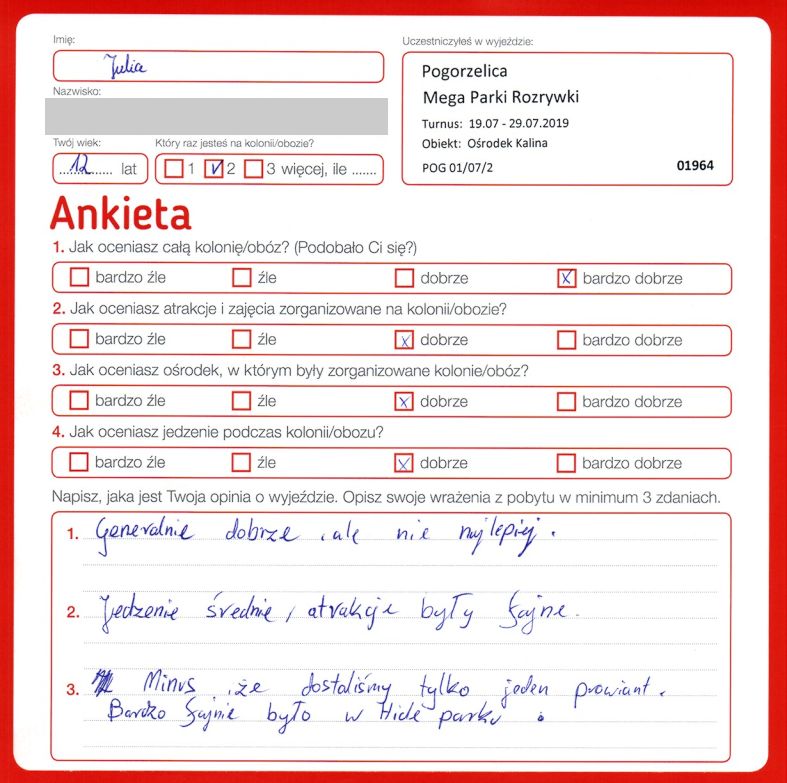 Imię:
Julia
Nazwisko:
Twój wiek:
12 lat
Który raz jesteś na kolonii/obozie?
1 2 3 więcej, ile .......
Uczestniczyłeś w wyjeździe:
Pogorzelica
Mega Parki Rozrywki
Turnus: 19.07 - 29.07.2019
Obiekt: Ośrodek Kalina
POG 01/07/2 01964
Ankieta
1. Jak oceniasz całą kolonię/obóz? (Podobało Ci się?)
bardzo źle źle dobrze bardzo dobrze
2. Jak oceniasz atrakcje i zajęcia zorganizowane na kolonii/obozie?
bardzo źle źle dobrze bardzo dobrze
3. Jak oceniasz ośrodek, w którym były zorganizowane kolonie/obóz?
bardzo źle źle dobrze bardzo dobrze
4. Jak oceniasz jedzenie podczas kolonii/obozu?
bardzo źle źle dobrze bardzo dobrze
Napisz, jaka jest Twoja opinia o wyjeździe. Opisz swoje wrażenia z pobytu w minimum 3 zdaniach.
1. Generalnie dobrze, ale nie najlepiej.
2. Jedzenie średnie, atrakcje były fajne.
3. Minus, że dostaliśmy tylko jeden prowiant.
Bardzo fajnie było w Hide parku.